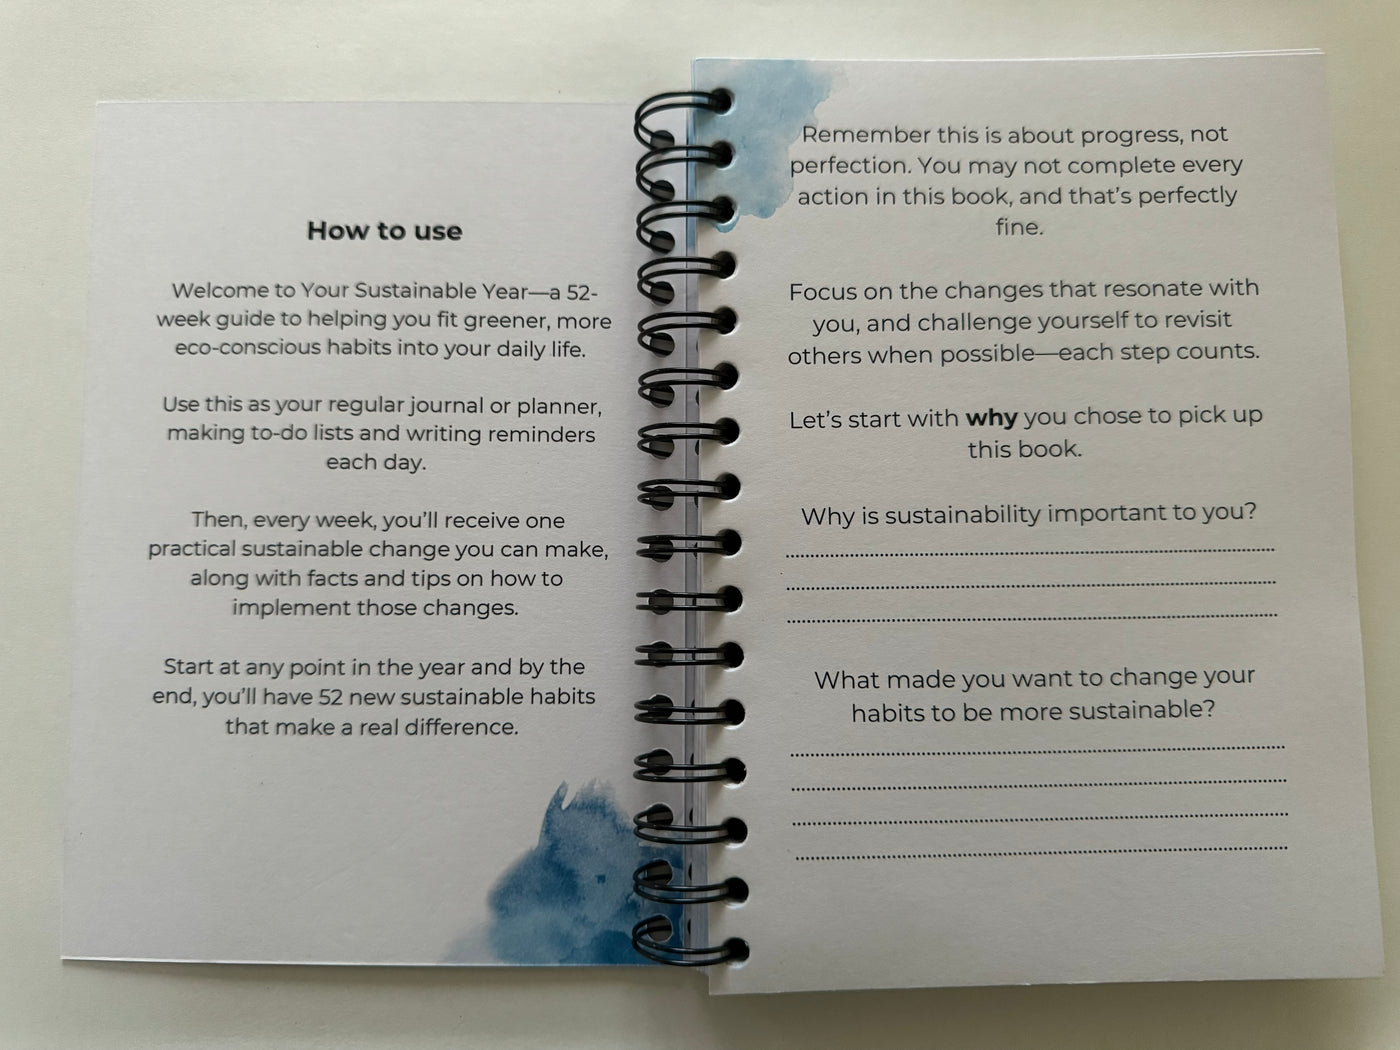 How to use
Welcome to Your Sustainable Year—a 52-
week guide to helping you fit greener, more
eco-conscious habits into your daily life.
Use this as your regular journal or planner,
making to-do lists and writing reminders
each day.
Then, every week, you'll receive one
practical sustainable change you can make,
along with facts and tips on how to
implement those changes.
Start at any point in the year and by the
end, you'll have 52 new sustainable habits
that make a real difference.
Remember this is about progress, not
perfection. You may not complete every
action in this book, and that's perfectly
fine.
Focus on the changes that resonate with
you, and challenge yourself to revisit
others when possible—each step counts.
Let's start with why you chose to pick up
this book.
Why is sustainability important to you?
What made you want to change your
habits to be more sustainable?